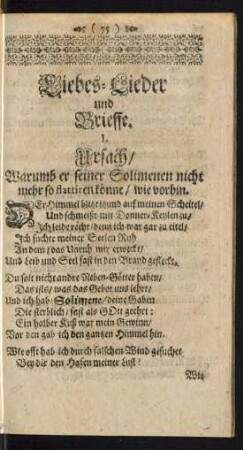 ( 75 )
Liebes-Lieder
und
Brieffe.
1.
Ursach/
Warumb er seiner Solimenen nicht
mehr so flattiren könne/ wie vorhin.
DEr Himmel blitzt itzund auf meinen Scheitel/
Und schmeißt mit Donner-Keylen zu/
Ich leide recht/ denn ich war gar zu eitel/
Ich suchte meiner Seelen Ruh
An dem/ das Unruh mir erweckt/
Und Leib und Seel fast in den Brand gesteckt.
Du solt nicht andre Neben-Götter haben/
Das ists/ was das Gebot uns lehrt/
Und ich hab Solimene/ deine Gaben
Die sterblich/ fast als GOtt geehrt:
Ein halber Kuß war mein Gewinn/
Vor den gab ich den gantzen Himmel hin.
Wie offt hab ich durch falschen Wind gesuchet
Bey dir den Hafen meiner Lust!
Wie